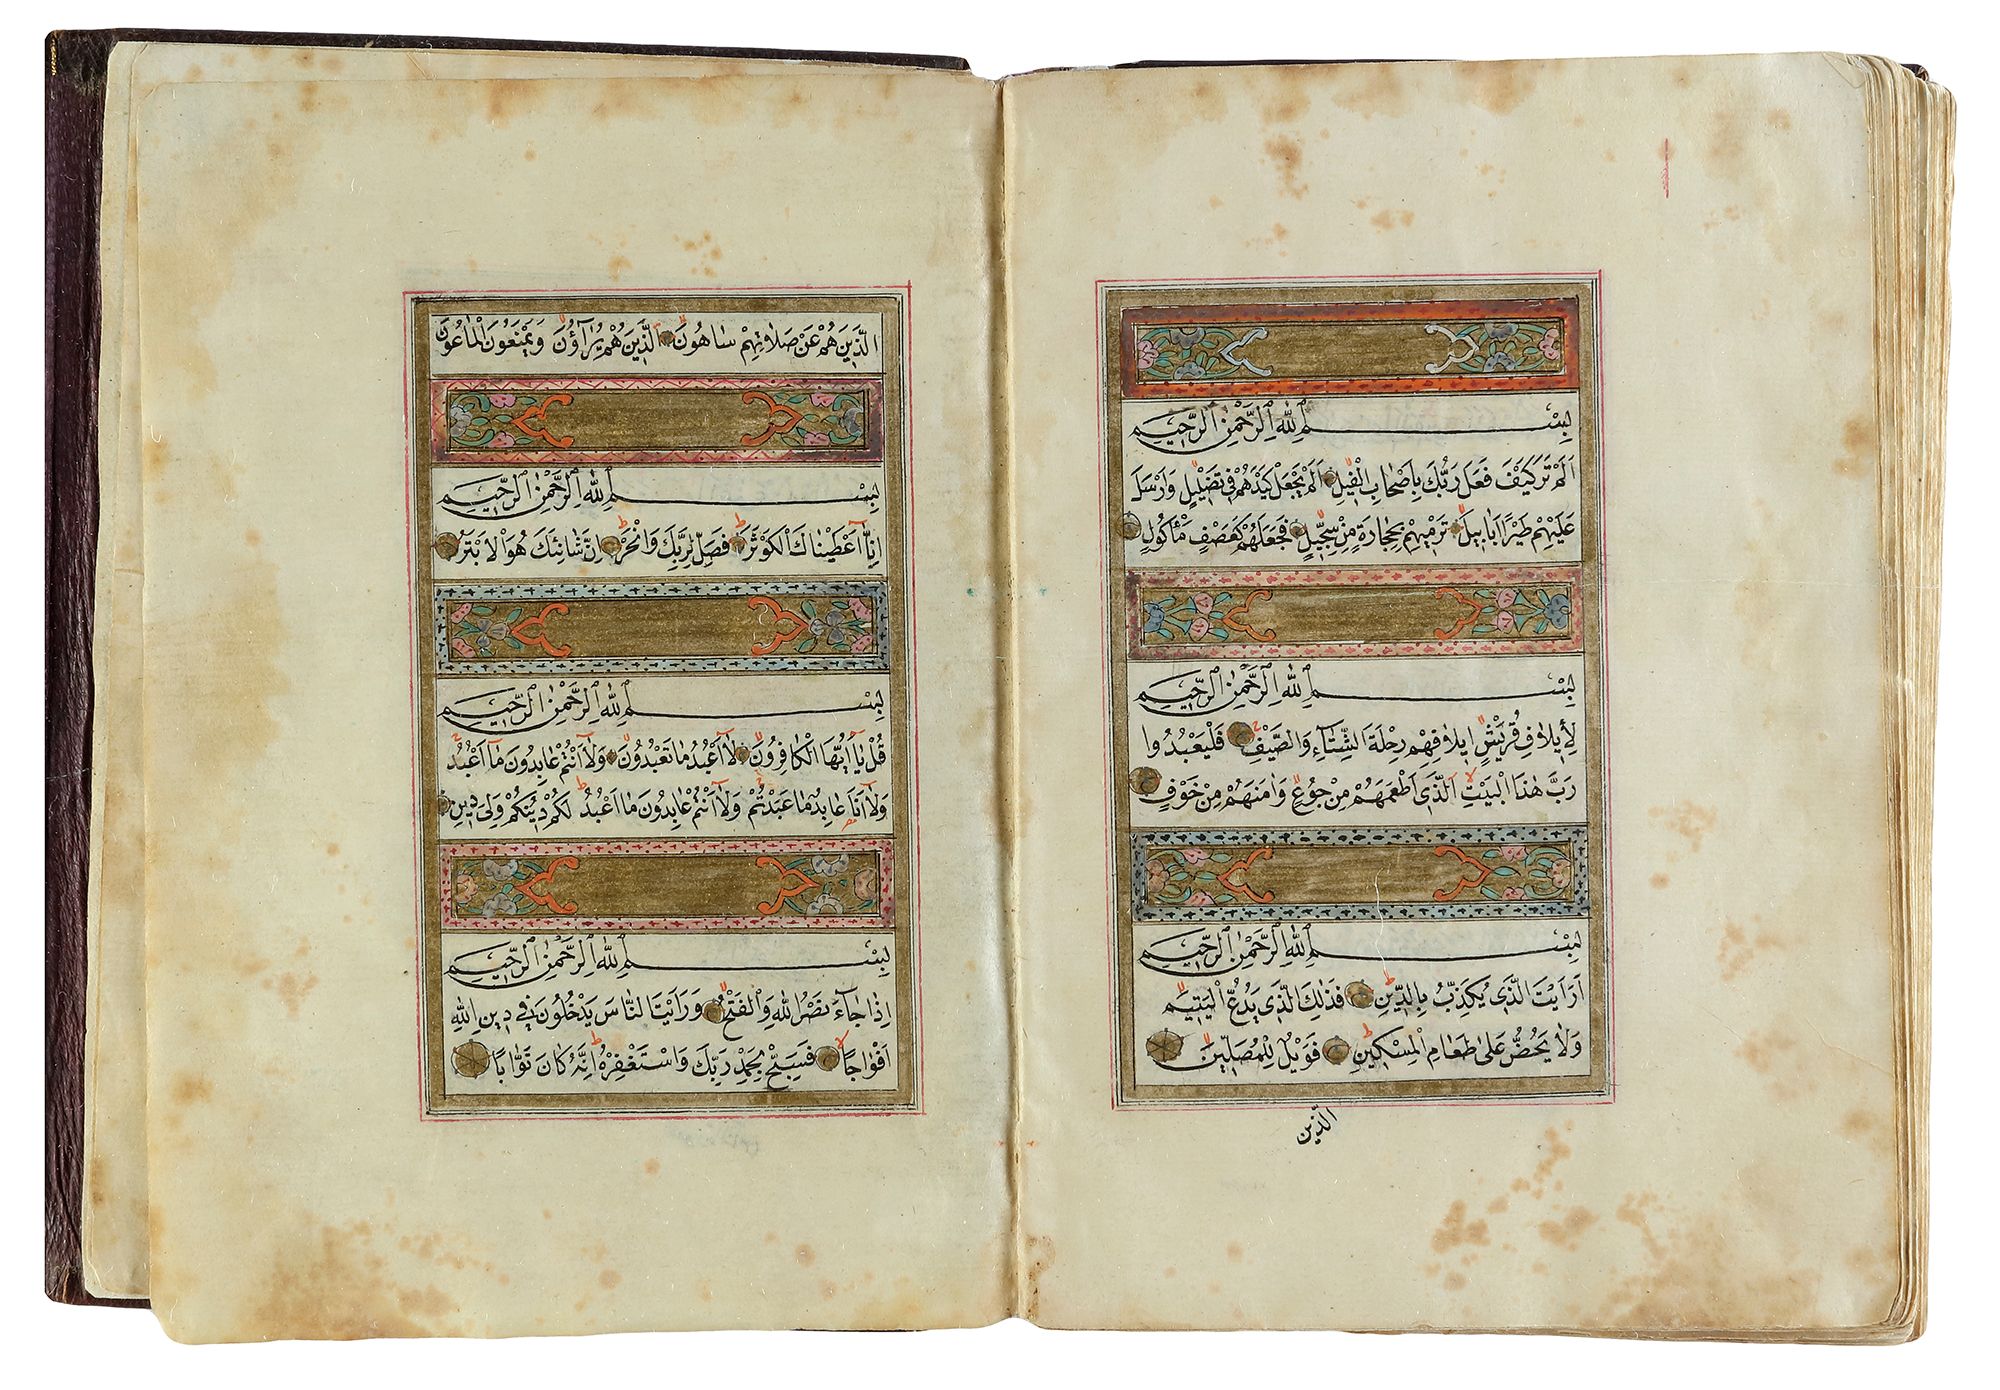 بِسْمِ اللهِ الرَّحْمٰنِ الرَّحِيمِ
اَلَمْ تَرَ كَيْفَ فَعَلَ رَبُّكَ بِاَصْحَابِ الْفِيلِ اَلَمْ يَجْعَلْ كَيْدَهُمْ فِى تَضْلِيلٍ وَاَرْسَلَ
عَلَيْهِمْ طَيْرًا اَبَابِيلَ تَرْمِيهِمْ بِحِجَارَةٍ مِنْ سِجِّيلٍ فَجَعَلَهُمْ كَعَصْفٍ مَاْكُولٍ
بِسْمِ اللهِ الرَّحْمٰنِ الرَّحِيمِ
لِاِيلَافِ قُرَيْشٍ اِيلَافِهِمْ رِحْلَةَ الشِّتَاءِ وَالصَّيْفِ فَلْيَعْبُدُوا
رَبَّ هٰذَا الْبَيْتِ الَّذِى اَطْعَمَهُمْ مِنْ جُوعٍ وَاٰمَنَهُمْ مِنْ خَوْفٍ
بِسْمِ اللهِ الرَّحْمٰنِ الرَّحِيمِ
اَرَاَيْتَ الَّذِى يُكَذِّبُ بِالدِّينِ فَذٰلِكَ الَّذِى يَدُعُّ الْيَتِيمَ
وَلَا يَحُضُّ عَلٰى طَعَامِ الْمِسْكِينِ فَوَيْلٌ لِلْمُصَلِّينَ
الَّذِينَ
الَّذِينَ هُمْ عَنْ صَلَاتِهِمْ سَاهُونَ اَلَّذِينَ هُمْ يُرَآؤُنَ وَيَمْنَعُونَ الْمَاعُونَ
بِسْمِ اللهِ الرَّحْمٰنِ الرَّحِيمِ
اِنَّا اَعْطَيْنَاكَ الْكَوْثَرَ فَصَلِّ لِرَبِّكَ وَانْحَرْ اِنَّ شَانِئَكَ هُوَ الْاَبْتَرُ
بِسْمِ اللهِ الرَّحْمٰنِ الرَّحِيمِ
قُلْ يَا اَيُّهَا الْكَافِرُونَ لَا اَعْبُدُ مَا تَعْبُدُونَ وَلَا اَنْتُمْ عَابِدُونَ مَا اَعْبُدُ
وَلَا اَنَا عَابِدٌ مَا عَبَدْتُمْ وَلَا اَنْتُمْ عَابِدُونَ مَا اَعْبُدُ لَكُمْ دِينُكُمْ وَلِىَ دِينِ
بِسْمِ اللهِ الرَّحْمٰنِ الرَّحِيمِ
اِذَا جَاءَ نَصْرُ اللهِ وَالْفَتْحُ وَرَاَيْتَ النَّاسَ يَدْخُلُونَ فِى دِينِ اللهِ
اَفْوَاجًا فَسَبِّحْ بِحَمْدِ رَبِّكَ وَاسْتَغْفِرْهُ اِنَّهُ كَانَ تَوَّابًا